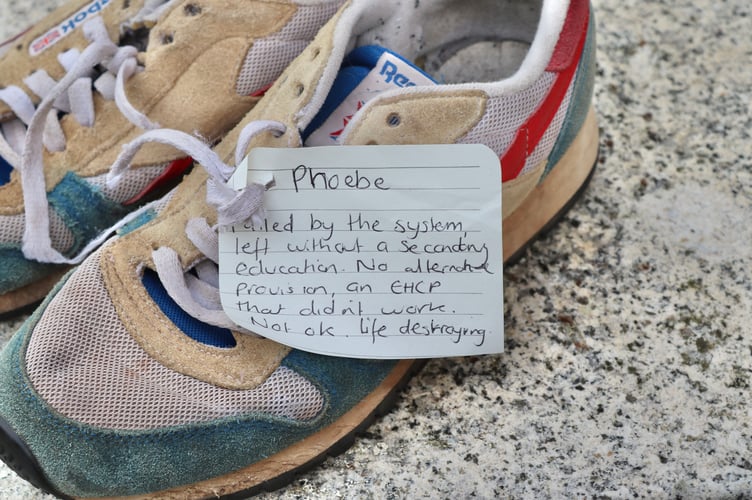 Reebok
Ree
Phoebe
Failed by the system,
left without a secondary
education. No alternative
provision, an EHCP
that didn't work.
Not ok. Life destroying.